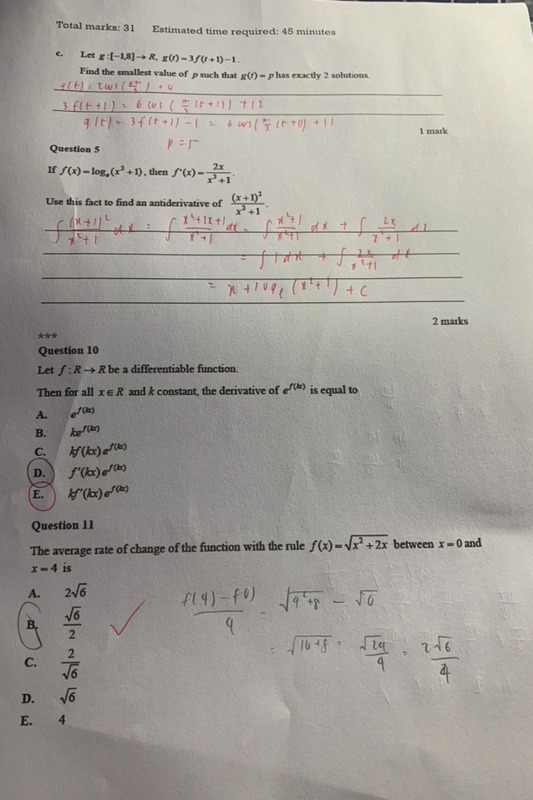 Total marks: 31 Estimated time required: 45 minutes
c. Let g:[−1,8]→R, g(t)=3f(t+1)−1.
Find the smallest value of p such that g(t)=p has exactly 2 solutions.
f(t) = 2cos(πt/3) + 4
3f(t+1) = 6cos(π/3(t+1)) + 12
g(t) = 3f(t+1)−1 = 6cos(π/3(t+1)) + 11
1 mark
p=5
Question 5
If f(x)=logₑ(x²+1), then f'(x)=2x/(x²+1).
Use this fact to find an antiderivative of (x+1)²/(x²+1).
∫(x+1)²/(x²+1) dx = ∫(x²+2x+1)/(x²+1) dx = ∫(x²+1)/(x²+1) dx + ∫2x/(x²+1) dx
= ∫1dx + ∫2x/(x²+1) dx
= x + logₑ(x²+1) + c
2 marks
***
Question 10
Let f:R→R be a differentiable function.
Then for all x∈R and k constant, the derivative of e^f(kx) is equal to
A. e^f(kx)
B. ke^f(kx)
C. kf(kx)e^f(kx)
D. f'(kx)e^f(kx)
E. kf'(kx)e^f(kx)
Question 11
The average rate of change of the function with the rule f(x)=√(x²+2x) between x=0 and
x=4 is
A. 2√6
B. √6/2
C. 2/√6
D. √6
E. 4
(f(4)−f(0))/4 = √(4²+8) − √0
= √(16+8) = √24/4 = 2√6/4